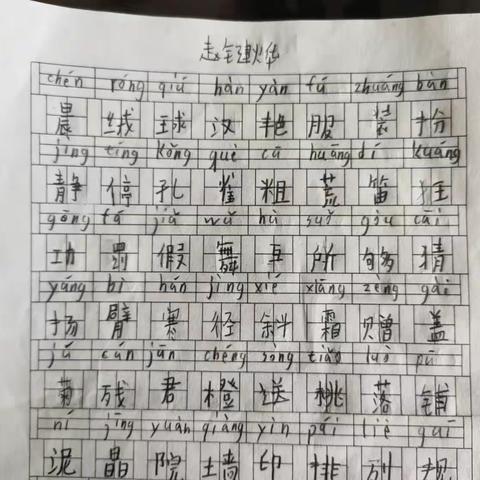 chén róng qiú hàn yàn fú zhuāng bàn
晨 绒 球 汉 艳 服 装 扮
jìng tíng kǒng què cū huāng dí kuáng
静 停 孔 雀 粗 荒 笛 狂
gōng fá jiǎ wǔ hù suǒ gòu cāi
功 罚 假 舞 所 够 猜
yáng bì hán jìng xié xiāng zèng gài
扬 臂 寒 径 斜 霜 赠 盖
jú cán jūn chéng sòng tiáo luò pū
菊 残 君 橙 送 桃 落 铺
ní jīng yuàn qiáng yìn pái liè guī
泥 晶 院 墙 印 排 列 规